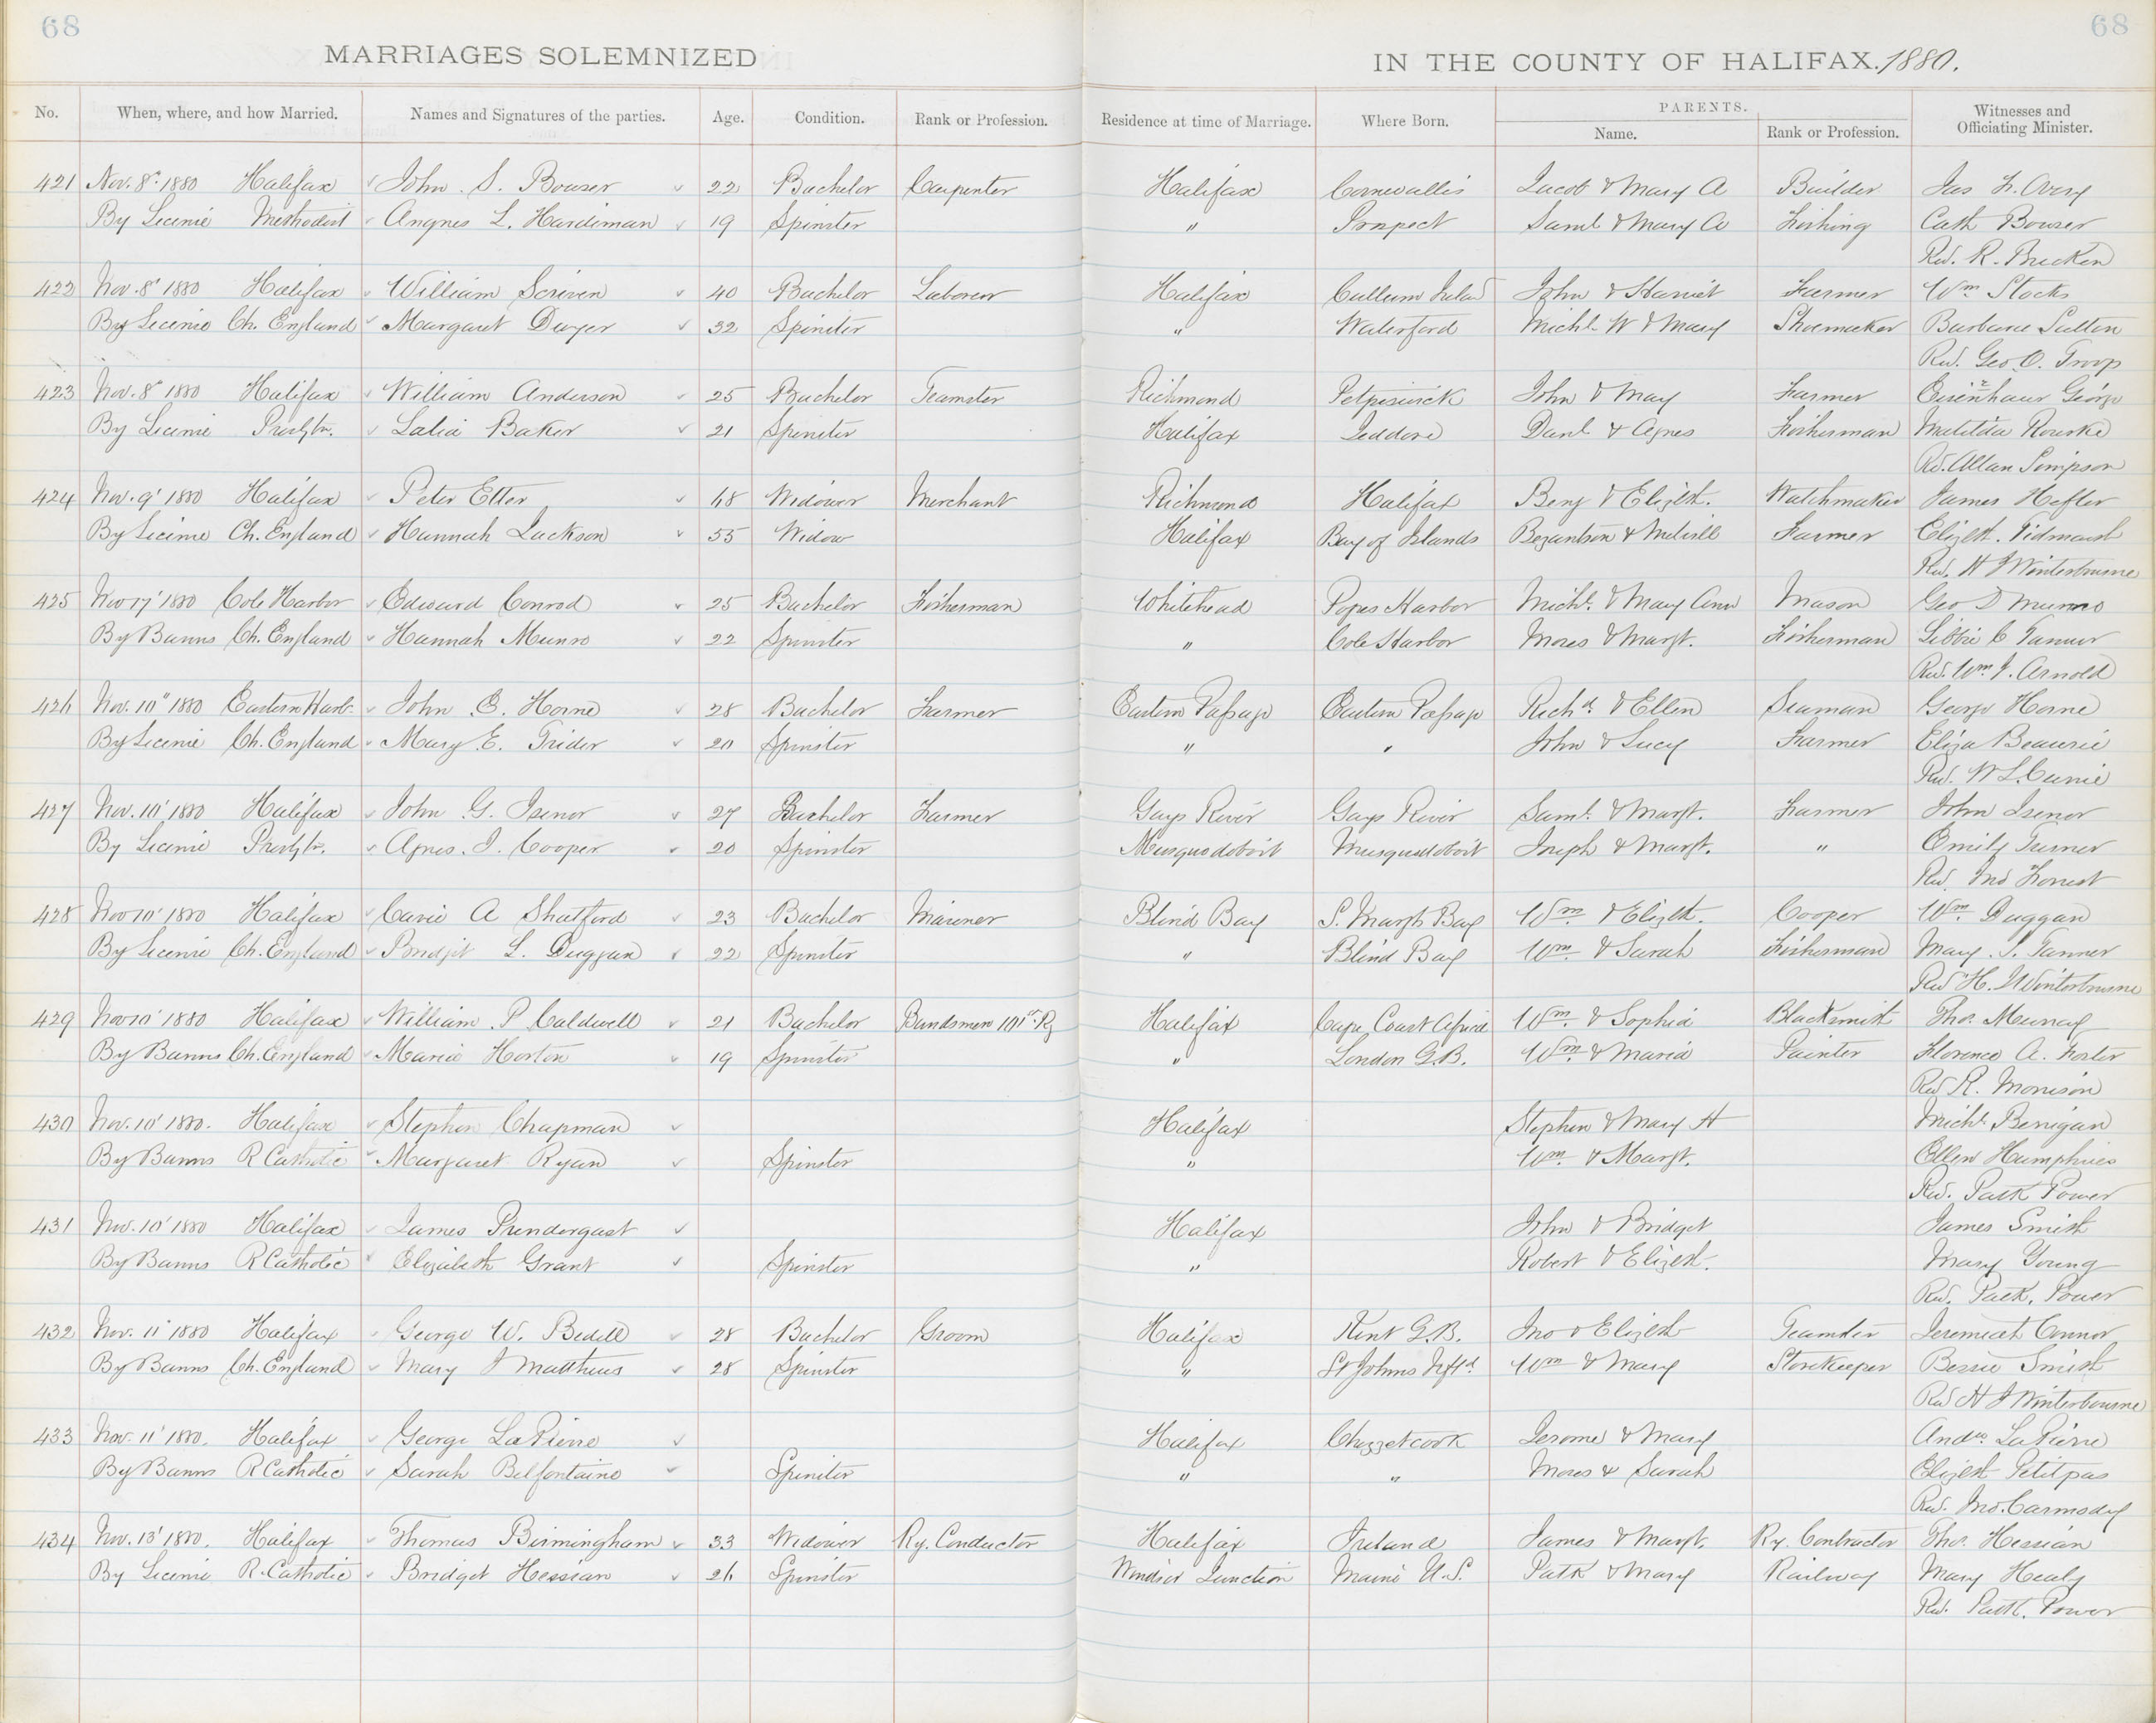 68 68
MARRIAGES SOLEMNIZED IN THE COUNTY OF HALIFAX. 1880.
No. When, where, and how Married. Names and Signatures of the parties. Age. Condition. Rank or Profession. Residence at time of Marriage. Where Born. PARENTS. Name. Rank or Profession. Witnesses and Officiating Minister.
421 Nov. 8" 1880 Halifax John S. Bowser 22 Bachelor Carpenter Halifax Cornwallis Jacob & Mary A Builder Jas H. Avery
By Licence Methodist Angnes L. Hardiman 19 Spinster " Prospect Saml & Mary A Fishing Cath Bowser
Rev. R. Brecken
422 Nov. 8" 1880 Halifax William Scriven 40 Bachelor Laborer Halifax Cullum Ireland John & Harriet Farmer Wm Stocks
By Licence Ch. England Margaret Dwyer 32 Spinster " Waterford Michl W & Mary Shoemaker Barbara Sutton
Rev. Geo. O. Troop
423 Nov. 8" 1880 Halifax William Anderson 25 Bachelor Teamster Richmond Petpiswick John & Mary Farmer Eisenhaur George
By Licence Presbtn. Lalia Baker 21 Spinster Halifax Jeddore Danl & Agnes Fisherman Matilda Rourke
Rev. Allan Simpson
424 Nov. 9' 1880 Halifax Peter Etter 68 Widower Merchant Richmond Halifax Benj & Elizth. Watchmaker James Hefler
By Licence Ch. England Hannah Jackson 55 Widow Halifax Bay of Islands Bezantson & Melvill Farmer Elizth. Tidmarsh
Rev. H J Winterbourne
425 Nov 17' 1880 Cole Harbor Edward Conrod 25 Bachelor Fisherman Whitehead Popes Harbor Michl. & Mary Ann Mason Geo D Munro
By Banns Ch. England Hannah Munro 22 Spinster " Cole Harbor Moses & Margt. Fisherman Libbie C Tanner
Rev. Wm. J. Arnold
426 Nov. 10" 1880 Eastern Harb. John E. Horne 28 Bachelor Farmer Eastern Passage Eastern Passage Richd. & Ellen Seaman George Horne
By Licence Ch. England Mary E. Trider 20 Spinster " " John & Lucy Farmer Eliza Beaurie
Rev. W L Currie
427 Nov. 10' 1880 Halifax John G. Isenor 27 Bachelor Farmer Gays River Gays River Saml. & Margt. Farmer John Isenor
By Licence Presbtn. Agnes. J. Cooper 20 Spinster Musquodoboit Musquodoboit Joseph & Margt. " Emily Turner
Rev. Jno Forrest
428 Nov 10' 1880 Halifax A Shatford 23 Bachelor Mariner Blind Bay S. Margts Bay Wm. & Elizth. Cooper Wm. Duggan
By Licence Ch. England Bridgit L. Duggan 22 Spinster " Blind Bay Wm. & Sarah Fisherman Mary. S. Tanner
Rev H. J Winterbourne
429 Nov 10' 1880 Halifax William. P Caldwell 21 Bachelor Bandsman 101st Rg Halifax Cape Coast Africa Wm. & Sophia Blacksmith Thos. Murray
By Banns Ch. England Maria Horton 19 Spinster " London G.B. Wm. & Maria Painter Florence A. Forter
Rev R. Morrison
430 Nov. 10' 1880. Halifax Stephen Chapman Halifax Stephen & Mary H Michl. Berrigan
By Banns R Catholic Margaret Ryan Spinster " Wm. & Margt. Ellen Humphries
Rev. Patk Power
431 Nov. 10' 1880 Halifax James Prendergast Halifax John & Bridget James Smith
By Banns R Catholic Elizabeth Grant Spinster " Robert & Elizth. Mary Young
Rev. Patk. Power
432 Nov. 11' 1880 Halifax George W. Bedell 28 Bachelor Groom Halifax Kent G.B. Jno & Elizth Teamster Jeremiah Connor
By Banns Ch. England Mary J Matthews 28 Spinster " St Johns Nfld. Wm & Mary Storekeeper Bessie Smith
Rev H J Winterbourne
433 Nov. 11' 1880. Halifax George LaPierre Halifax Chezzetcook Jerome & Mary Andw. LaPierre
By Banns R Catholic Sarah Belfontaine Spinster " " Moses & Sarah Elizth Petitpas
Rev. Jno. Carmody
434 Nov. 13' 1880. Halifax Thomas Birmingham 33 Widower Ry. Conductor Halifax Ireland James & Margt. Ry. Contractor Thos. Hessian
By Licence R. Catholic Bridget Hessian 26 Spinster Windsor Junction Maine U.S. Patk & Mary Railway Mary Healy
Rev. Patk. Power